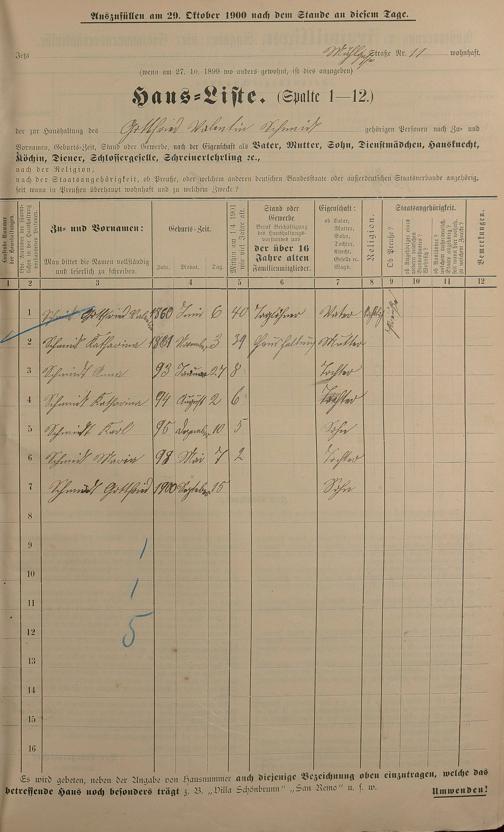 Auszufüllen am 29. Oktober 1900 nach dem Stande an diesem Tage.
Jetzt Mühlgasse Straße Nr. 11 wohnhaft.
(wenn am 27. 10. 1899 wo anders gewohnt, ist dies anzugeben)
Haus-Liste. (Spalte 1—12.)
der zur Haushaltung des Gottfried Valentin Schmid gehörigen Personen nach Zu- und
Vornamen, Geburts-Zeit, Stand oder Gewerbe, nach der Eigenschaft als Vater, Mutter, Sohn, Dienstmädchen, Hausknecht,
Köchin, Diener, Schlossergeselle, Schreinerlehrling ꝛc.,
nach der Religion,
nach der Staatsangehörigkeit, ob Preuße, oder welchem anderen deutschen Bundesstaate oder außerdeutschen Staatsverbande angehörig.
seit wann in Preußen überhaupt wohnhaft und zu welchem Zwecke?
Zu- und Vornamen:
Man bittet die Namen vollständig und leserlich zu schreiben.
Geburts-Zeit.
Jahr. Monat. Tag.
Mithin am 1/4 1901 wie viel Jahre alt.
Stand oder Gewerbe
der über 16 Jahre alten Familienmitglieder.
Eigenschaft:
ob Vater, Mutter, Sohn, Tochter, Knecht, Geselle ꝛc. Magd.
Religion.
Staatsangehörigkeit.
Ob Preuße?
Bemerkungen.
1 2 3 4 5 6 7 8 9 10 11 12
1 Schmid Gottfried 1860 Juni 6 40 Taglöhner Vater
2 Schmid Katharina 1861 3 39 Haushaltung Mutter
3 Schmidt Anna 93 Januar 27 8 Tochter
4 Schmidt Katharina 94 August 2 6 Tochter
5 Schmidt Karl 95 Dezember 10 5 Sohn
6 Schmidt Maria 98 Mai 7 2 Tochter
7 Schmidt Gottfried 1900 September 15 Sohn
8
9 1
10 1
11
12 5
13
14
15
16
Es wird gebeten, neben der Angabe von Hausnummer auch diejenige Bezeichnung oben einzutragen, welche das
betreffende Haus noch besonders trägt z. B. "Villa Schönbrunn" "San Remo" u. s. w. Umwenden!